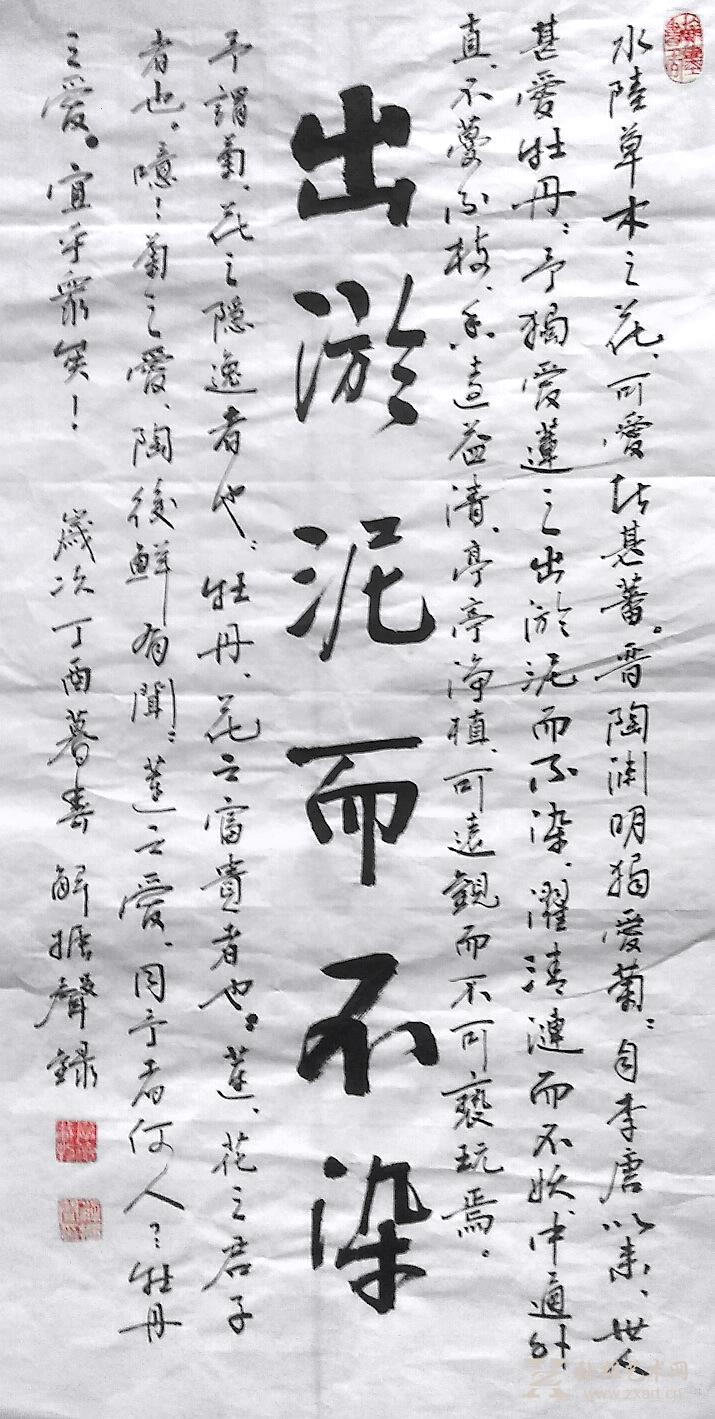 水陸草木之花、可愛者甚蕃。晋陶渊明獨愛菊；自李唐以来、世人
甚愛牡丹；予獨愛蓮之出淤泥而不染、濯清漣而不妖、中通外
直、不蔓不枝、香遠益清、亭亭净植、可遠觀而不可褻玩焉。
出淤泥而不染
予謂菊、花之隐逸者也；牡丹、花之富貴者也；蓮、花之君子
者也。噫！菊之愛、陶後鮮有聞；蓮之愛、同予者何人？牡丹
之愛。宜乎衆矣！ 歲次丁酉暮春 解振聲録
www.zxart.cn